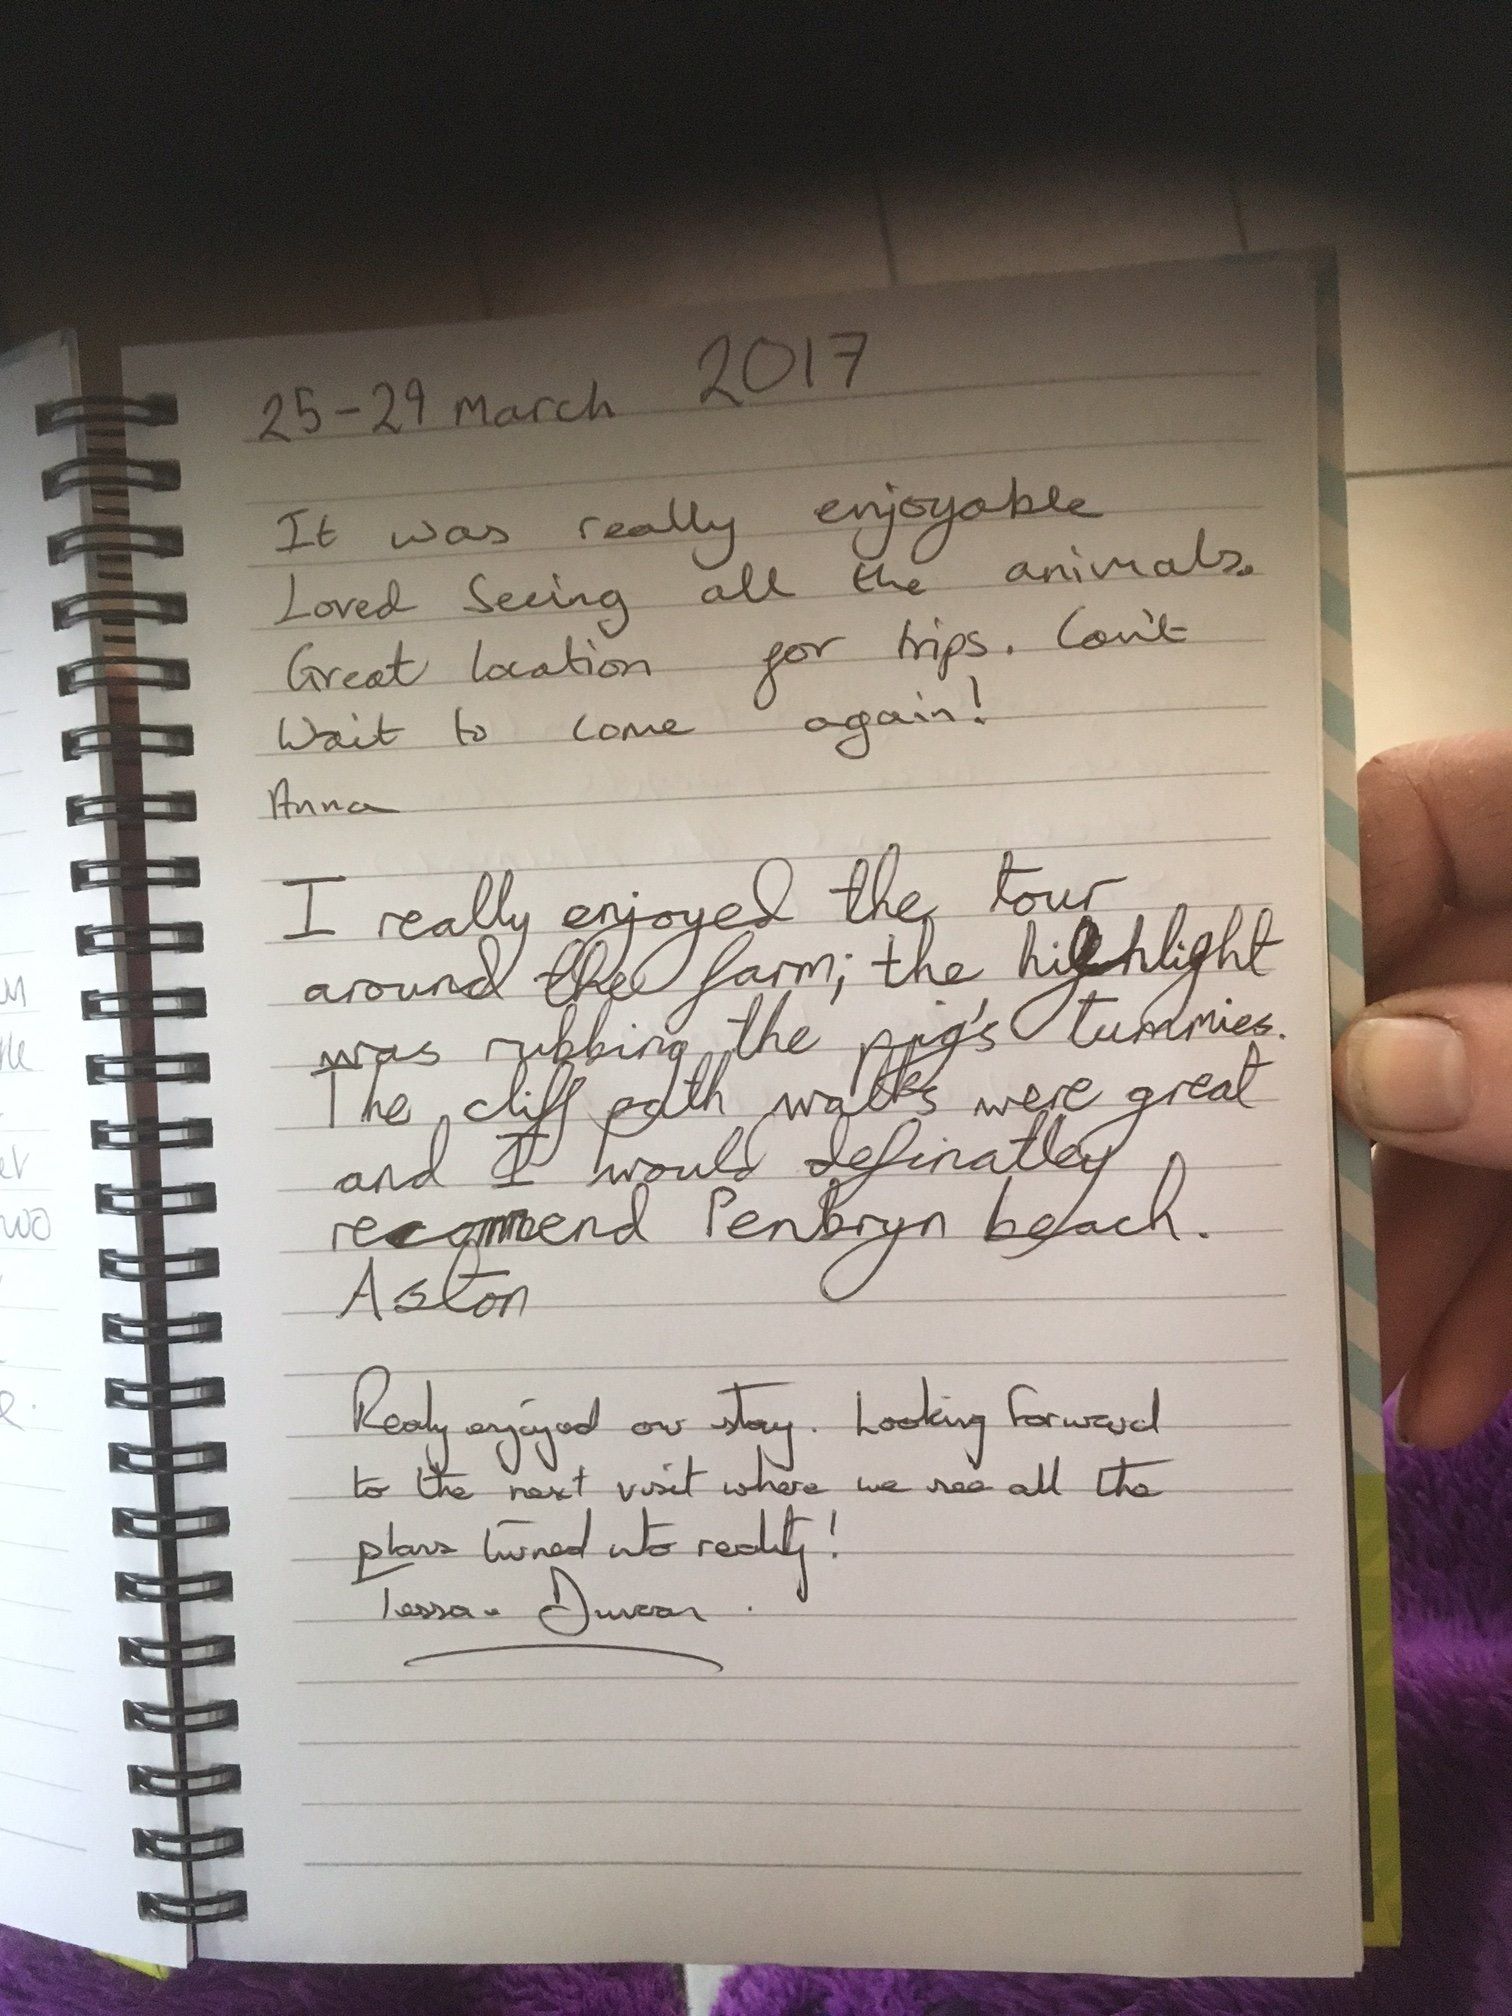 25-29 March 2017
It was really enjoyable
Loved Seeing all the animals.
Great location for trips. Can't
Wait to come again!
Anna
I really enjoyed the tour
around the farm; the highlight
was rubbing the pig's tummies.
The cliff path walks were great
and I would definatley
recommend Penbryn beach.
Aston
Realy enjoyed our stay. Looking forward
to the next visit where we see all the
plans turned into reality!
Tessa Duncan.